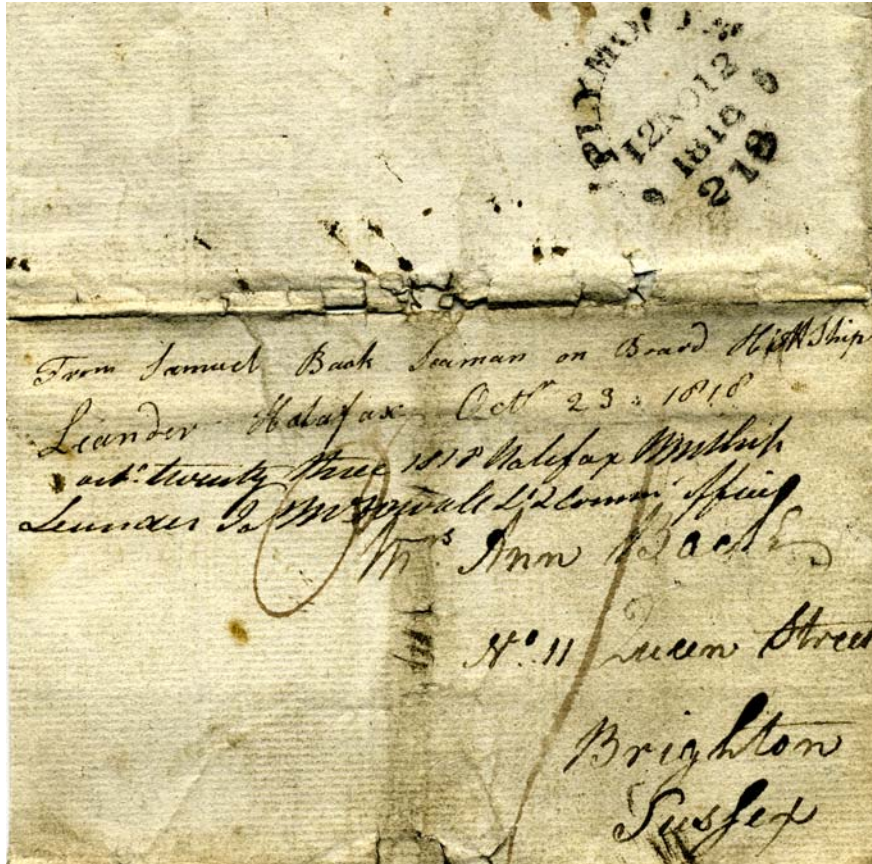 PLYMOUTH
12NO12
1818
218
From Samuel Back Seaman on Board His M Ship
Leander Halafax Octr 23 1818
octr twenty three 1818 Halifax
Leander Lt & Comm officer
Mrs Ann Back
No. 11 Queen Street
Brighton
Sussex